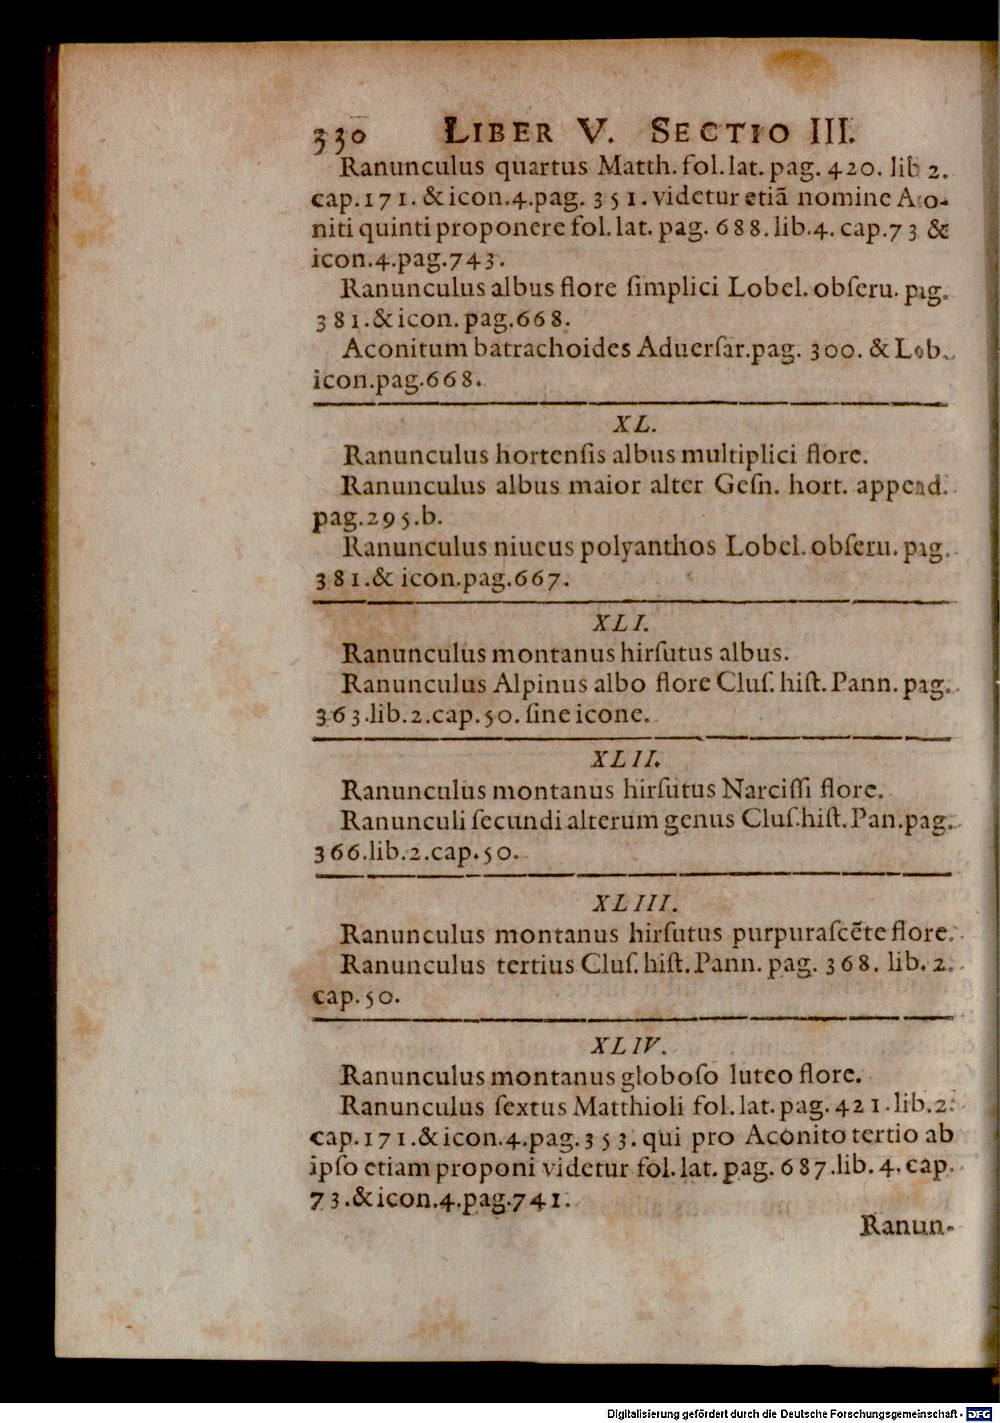 330 LIBER V. SECTIO III.
Ranunculus quartus Matth. fol. lat. pag. 420. lib 2.
cap. 171. & icon. 4. pag. 351. videtur etiā nomine Aco-
niti quinti proponere fol. lat. pag. 688. lib. 4. cap. 73 &
icon. 4. pag. 743.
Ranunculus albus flore ſimplici Lobel. obſeru. pag.
381. & icon. pag. 668.
Aconitum batrachoides Aduerſar. pag. 300. & Lob.
icon. pag. 668.
XL.
Ranunculus hortenſis albus multiplici flore.
Ranunculus albus maior alter Geſn. hort. append.
pag. 295. b.
Ranunculus niueus polyanthos Lobel. obſeru. pag.
381. & icon. pag. 667.
XLI.
Ranunculus montanus hirſutus albus.
Ranunculus Alpinus albo flore Cluſ. hiſt. Pann. pag.
363. lib. 2. cap. 50. ſine icone.
XLII.
Ranunculus montanus hirſutus Narciſſi flore.
Ranunculi ſecundi alterum genus Cluſ. hiſt. Pan. pag.
366. lib. 2. cap. 50.
XLIII.
Ranunculus montanus hirſutus purpuraſcēte flore.
Ranunculus tertius Cluſ. hiſt. Pann. pag. 368. lib. 2.
cap. 50.
XLIV.
Ranunculus montanus globoſo luteo flore.
Ranunculus ſextus Matthioli fol. lat. pag. 421. lib. 2.
cap. 171. & icon. 4. pag. 353. qui pro Aconito tertio ab
ipſo etiam proponi videtur fol. lat. pag. 687. lib. 4. cap.
73. & icon. 4. pag. 741.
Ranun-
Digitalisierung gefördert durch die Deutsche Forschungsgemeinschaft - DFG